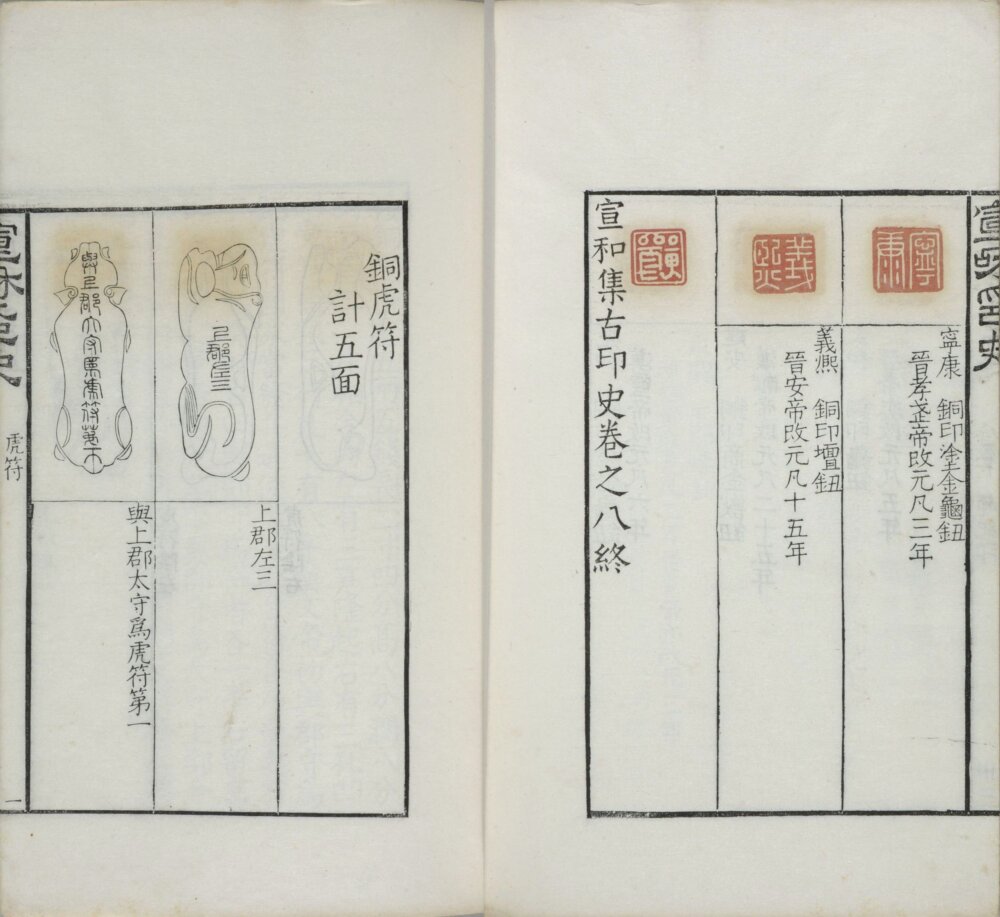 宣和印史
寧康
寧康 銅印塗金龜鈕
晉孝武帝改元凡三年
義熙
義熙 銅印壇鈕
晉安帝改元凡十五年
宣和集古印史卷之八終
銅虎符
計五面
上郡左三
上郡左三
與上郡太守爲虎符第一
與上郡太守爲虎符第一
宣和印史
虎符
一